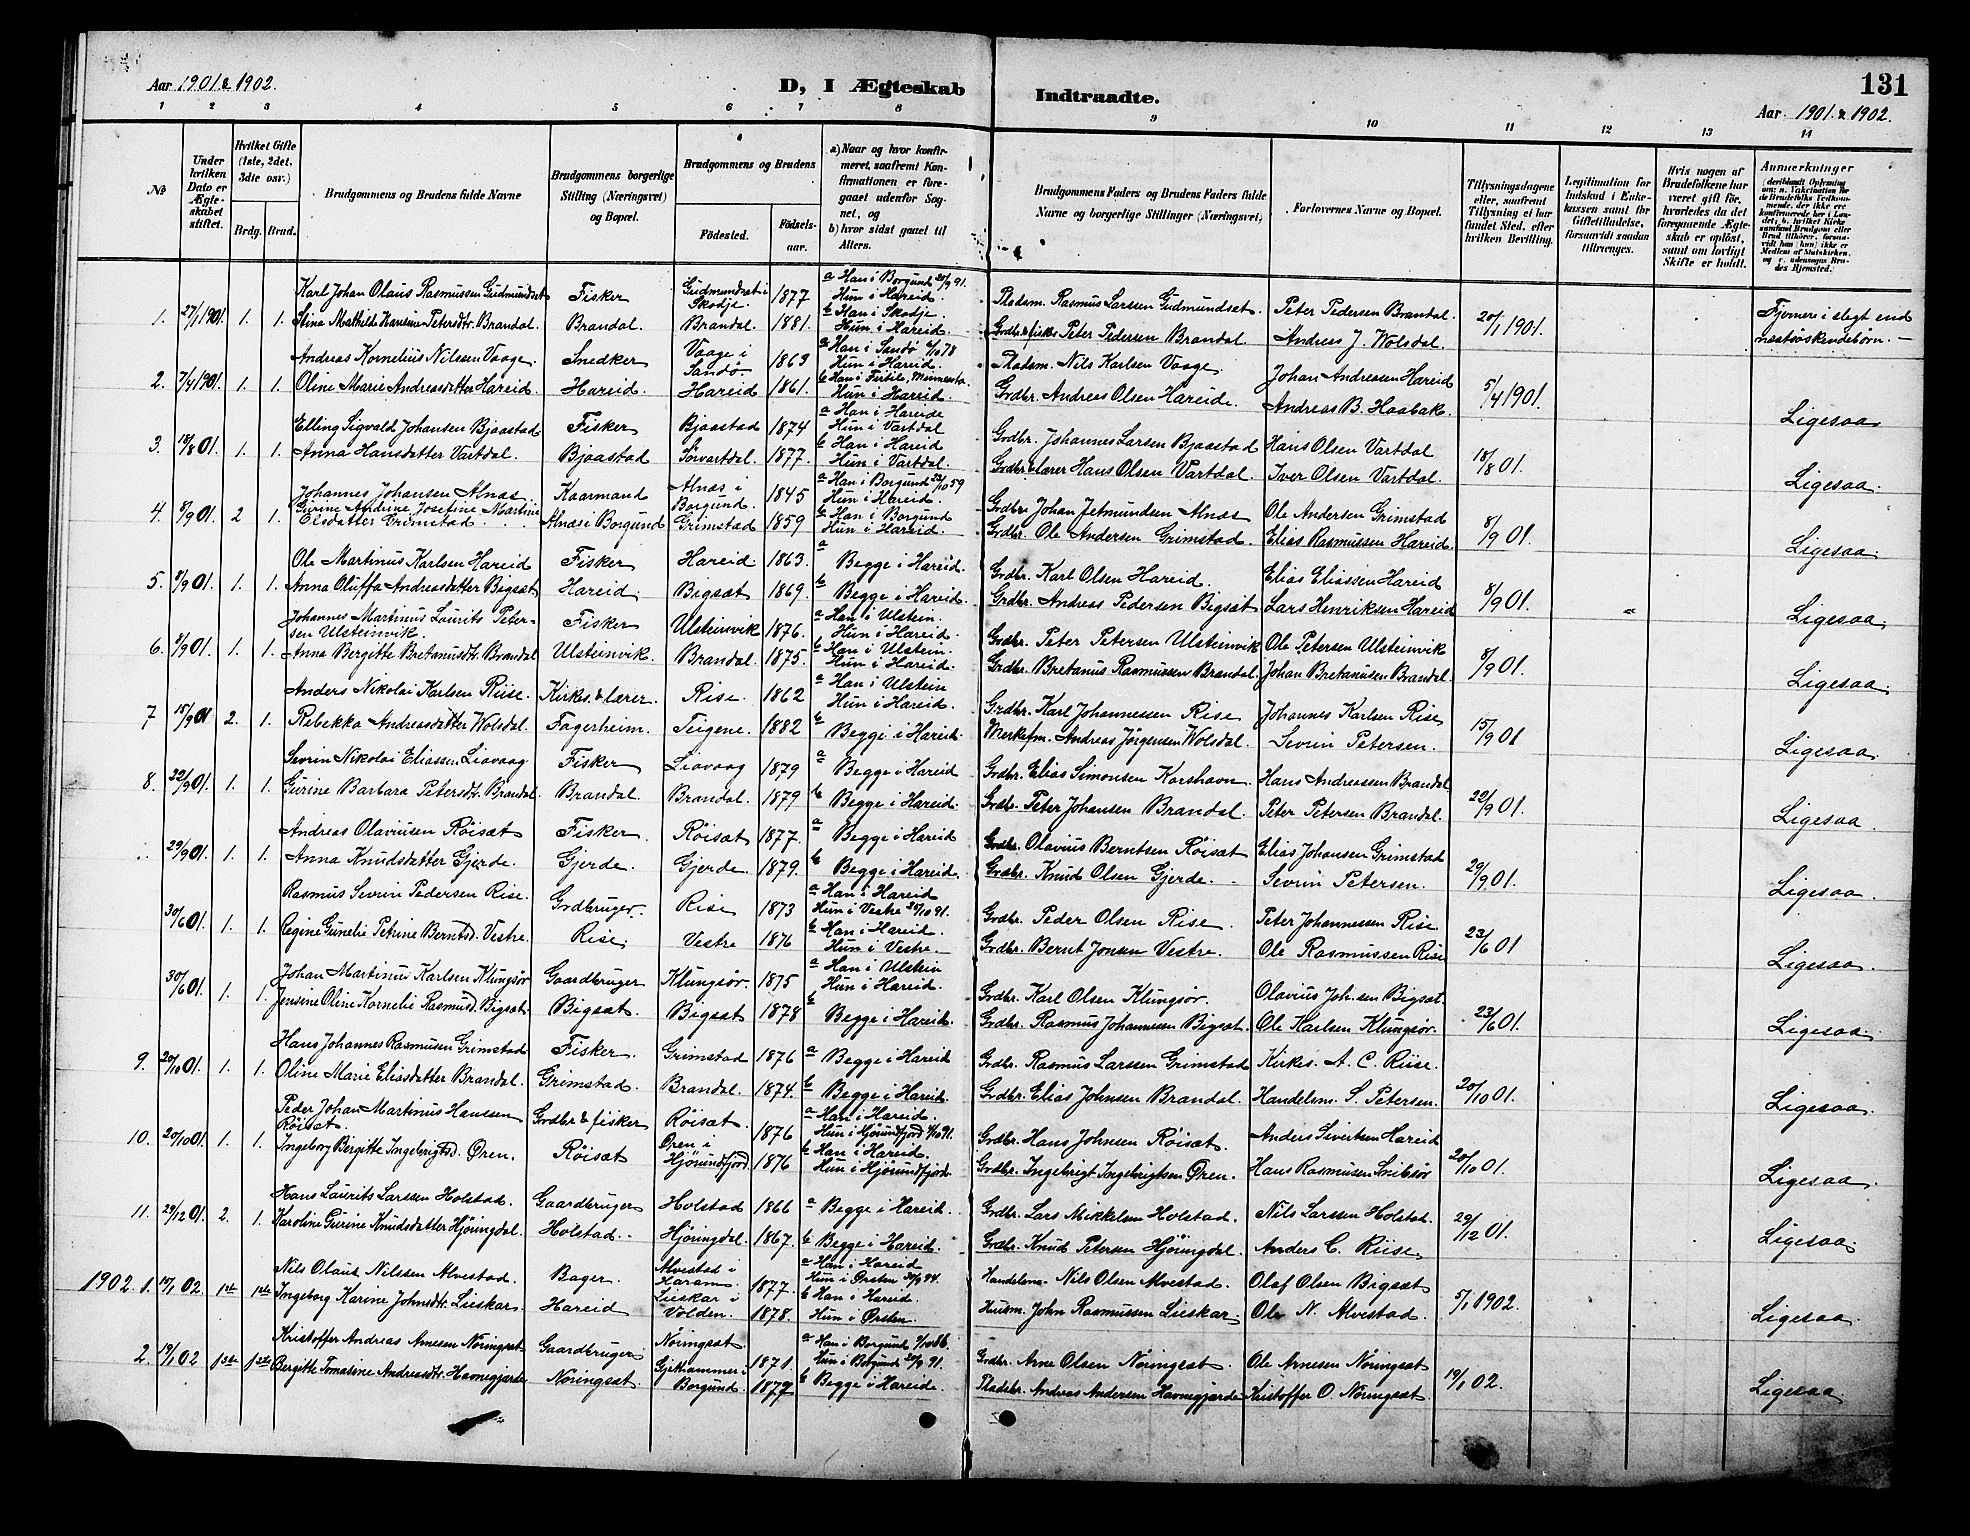 Aar 1901 & 1902.
D, I Ægteskab
Indtraadte.
131
Aar 1901 & 1902.
1 2 3 4 5 6 7 8 9 10 11 12 13 14
No
Under hvilken Dato er Ægteskabet stiftet.
Hvilket Gifte (1ste, 2det, 3die osv.)
Brdg. Brud.
Brudgommens og Brudens fulde Navne
Brudgommens borgerlige Stilling (Næringsvei) og Bopæl.
Brudgommens og Brudens
Fødested.
Fødselsaar.
a) Naar og hvor konfirmeret, saafremt Konfirmationen er foregaaet udenfor Sognet, og
b) hvor sidst gaaet til Alters.
Brudgommens Faders og Brudens Faders fulde Navne og borgerlige Stillinger (Næringsvei)
Forlovernes Navne og Bopæl.
Tillysningsdagene eller, saafremt Tillysning ei har fundet Sted, efter hvilken Bevilling.
Legitimation for Indskud i Enkekassen samt for Giftetilladelse, forsaavidt saadan tiltrænges.
Hvis nogen af Brudefolkene har været gift før, hvorledes da det foregaaende Ægteskab er opløst, samt om lovligt Skifte er holdt.
Anmærkninger
Karl Johan Olaus Rasmussen Gudmundset Fisker Gudmundset i Skodje. 1877 a Han i Borgund 20/9 91. Hun i Hareid. Pladsm. Rasmus Larsen Gudmundset. Peter Pedersen Brandal.
1. 27/1 1901. 1. 1. Stina Mathilde Hansine Petersdtr. Brandal. Brandal. Brandal. 1881. b Han i Skodje. Hun i Hareid. Grdbr. & fisker Peter Pedersen Brandal. Andreas J. Wolsdal. 20/1 1901. Fjernere i slegt end næstsøskendebørn.
Andreas Kornelius Nilsen Vaage. Snedker Vaage i Sandø. 1863 a Han i Sandø 6/10 78 Hun i Hareid. Pladsm. Nils Karlsen Vaage. Johan Andreasen Hareid
2. 7/4 1901. 1. 1. Oline Marie Andreasdatter Hareid. Hareid. Hareid 1861. b Han i Fertile, Minnesota. Hun i Hareid. Grdbr. Andreas Olsen Hareide. Andreas B. Haabak. 5/4 1901. Ligesaa
Elling Sigvald Johansen Bjaastad Fisker Bjaastad 1874 a Han i Hareide Hun i Vartdal Grdbr. Johannes Larsen Bjaastad Hans Olsen Vartdal
3. 18/8 01. 1. 1. Anna Hansdatter Vartdal. Bjaastad Sørvartdal. 1877. b Han i Hareid Hun i Vartdal. Grdbr & lærer Hans Olsen Vartdal. Iver Olsen Vartdal. 18/8 01. Ligesaa.
Johannes Johansen Alnæs Kaarmand Alnæs i Borgund. 1845 a Han i Borgund 23/10 59 Hun i Hareid. Grdbr. Johan Jetmundsen Alnæs Ole Andersen Grimstad
4. 8/9 01. 2 1. Gurine Andrine Josefine Martine Elsdatter Grimstad. Alnæs i Borgund Grimstad 1859 b Han i Borgund Hun i Hareid. Grdbr. Ole Andersen Grimstad. Elias Rasmussen Hareid. 8/9 01. Ligesaa.
Ole Martinus Karlsen Hareid Fisker Hareid. 1863. a Begge i Hareid. Grdbr. Karl Olsen Hareid. Elias Eliassen Hareid
5. 8/9 01. 1. 1. Anna Oluffa Andreasdatter Bigset. Hareid. Bigset 1869. b Begge i Hareid. Grdbr. Andreas Pedersen Bigset Lars Henriksen Hareid 8/9 01. " Ligesaa.
Johannes Martinus Laurits Petersen Ulsteinvik. Fisker Ulsteinvik 1876. a Han i Ulstein. Hun i Hareid. Grdbr. Peter Petersen Ulsteinvik Ole Petersen Ulsteinvik
6. 8/9 01. 1. 1. Anna Bergitte Bretanusdtr. Brandal Ulsteinvik. Brandal. 1875. b Han i Ulstein. Hun i Hareid. Grdbr. Bretanus Rasmussen Brandal. Johan Bretanusen Brandal. 8/9 01. Ligesaa.
Anders Nikolai Karlsen Riise. Kirkes. & lærer. Rise. 1862 a Han i Ulstein Hun i Hareid. Grdbr. Karl Johannessen Rise Johannes Karlsen Rise
7 15/9 01 2. 1. Rebekka Andreasdatter Wolsdal. Fagerheim. Teigene. 1882 b Begge i Hareid. Merkefm. Andreas Jørgensen Wolsdal. Sevrin Petersen. 15/9 01 Ligesaa.
Sevrin Nikolai Eliassen Liavaag Fisker Liavaag 1879 a Begge i Hareid Grdbr. Elias Simonsen Korshavn. Hans Andreassen Brandal
8. 22/9 01. 1. 1. Gurine Barbara Petersdtr. Brandal. Brandal Brandal. 1879 b Begge i Hareid. Grdbr. Peter Johansen Brandal. Peter Petersen Brandal. 22/9 01. Ligesaa.
Andreas Olaviusen Røiset Fisker. Røiset 1877. a Begge i Hareid Grdbr. Olavius Berntsen Røiset Elias Johansen Grimstad
29/9 01. 1. 1. Anna Knudsdatter Gjerde. Gjerde. Gjerde. 1879. b Begge i Hareid. Grdbr. Knud Olsen Gjerde. Sevrin Petersen. 29/9 01. Ligesaa.
Rasmus Sevrin Pedersen Rise. Grdbruger. Rise 1873 a Han i Hareid Hun i Vestre 20/10 91. Grdbr. Peder Olsen Rise. Peter Johannessen Rise
30/6 01. 1. 1. Regine Gunelie Petrine Berntsd. Vestre. Rise. Vestre 1876 b Han i Hareid. Hun i Vestre. Grdbr. Bernt Jonsen Vestre. Ole Rasmussen Rise 23/6 01 Ligesaa.
Johan Martinus Karlsen Klungsør Gaardbruger Klungsør. 1875 a Han i Ulstein Hun i Hareid. Grdbr. Karl Olsen Klungsør. Olavius Joh.sen Bigset.
30/6 01. 1. 1. Jensine Oline Kornelie Rasmusd. Bigset. Bigset. Bigset 1878 b Begge i Hareid. Grdbr. Rasmus Johannesen Bigset. Ole Karlsen Klungsør. 23/6 01. Ligesaa.
Hans Johannes Rasmusen Grimstad Fisker. Grimstad 1876 a Begge i Hareid Grdbr. Rasmus Larssen Grimstad Kirkes. A. C. Riise.
9. 20/10 01. 1. 1. Oline Marie Eliasdatter Brandal. Grimstad. Brandal. 1874. b Begge i Hareid. Grdbr. Elias Johnsen Brandal. Handelsm. S. Petersen. 20/10 01. Ligesaa.
Peder Johan Martinus Hanssen Røiset. Grdbr & fisker Røiset. 1876 a Han i Hareid. Hun i Hjørundfjord 4/10 91. Grdbr. Hans Johnsen Røiset. Anders Sivertsen Hareid
10. 20/10 01. 1. 1. Ingeborg Bergitte Ingebrigtsd. Øren. Røiset Øren i Hjørundfjord 1876 b Han i Hareid. Hun i Hjørundfjord. Grdbr. Ingebrigt Ingebrigtsen Øren. Hans Rasmusen Snibsør 20/10 01. Ligesaa.
Hans Laurits Larssen Holstad. Gaardbruger Holstad 1866 a Begge i Hareid. Grdbr. Lars Mikkelsen Holstad. Nils Larssen Holstad.
11. 29/12 01. 2. 1. Karoline Gurine Knudsdatter Hjøringdal. Holstad. Hjøringdal. 1867. b Begge i Hareid. Grdbr. Knud Petersen Hjøringdal. Anders C. Riise. 29/12 01. Ligesaa.
Nils Olaus Nilssen Alvestad. Bager. Alvestad i Haram. 1877. a Han i Hareid Hun i Ørsten 30/9 94. Handelsm. Nils Olsen Alvestad. Olaf Olsen Bigset
1902. 1. 15/1 02 1ste 1ste Ingeborg Karine Johnsdtr. Lieskar. Hareid Lieskar i Volden. 1878. b Han i Hareid. Hun i Ørsten. Husm. John Rasmussen Lieskar. Ole N. Alvestad. 5/1 1902. Ligesaa.
Kristoffer Andreas Arnesen Nøringset Gaardbruger Nøringset 1871. a Han i Borgund 3/10 86. Hun i Borgund 20/9 91. Grdbr. Arne Olsen Nøringset. Ole Arnesen Nøringset
2. 19/1 02 1ste 1ste Bergitte Tomasine Andreasdtr. Havnegjærde Nøringset. Gjethammer i Borgund 1877 b Begge i Hareide. Pladsbr. Andreas Andersen Havnegjærde Kristoffer O. Nøringset. 19/1 02. Ligesaa.